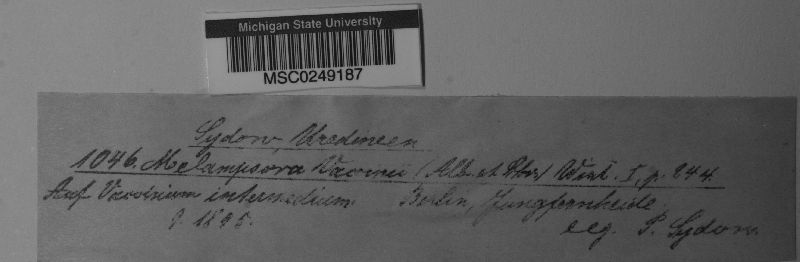 Michigan State University
MSC0249187
Sydow, Uredineen
1046. Melampsora Vaccinii (Alb. et Schw.) Wint. I, p. 244.
Auf Vaccinium intermedium. Berlin, Jungfernheide.
9. 1895. leg. P. Sydow.